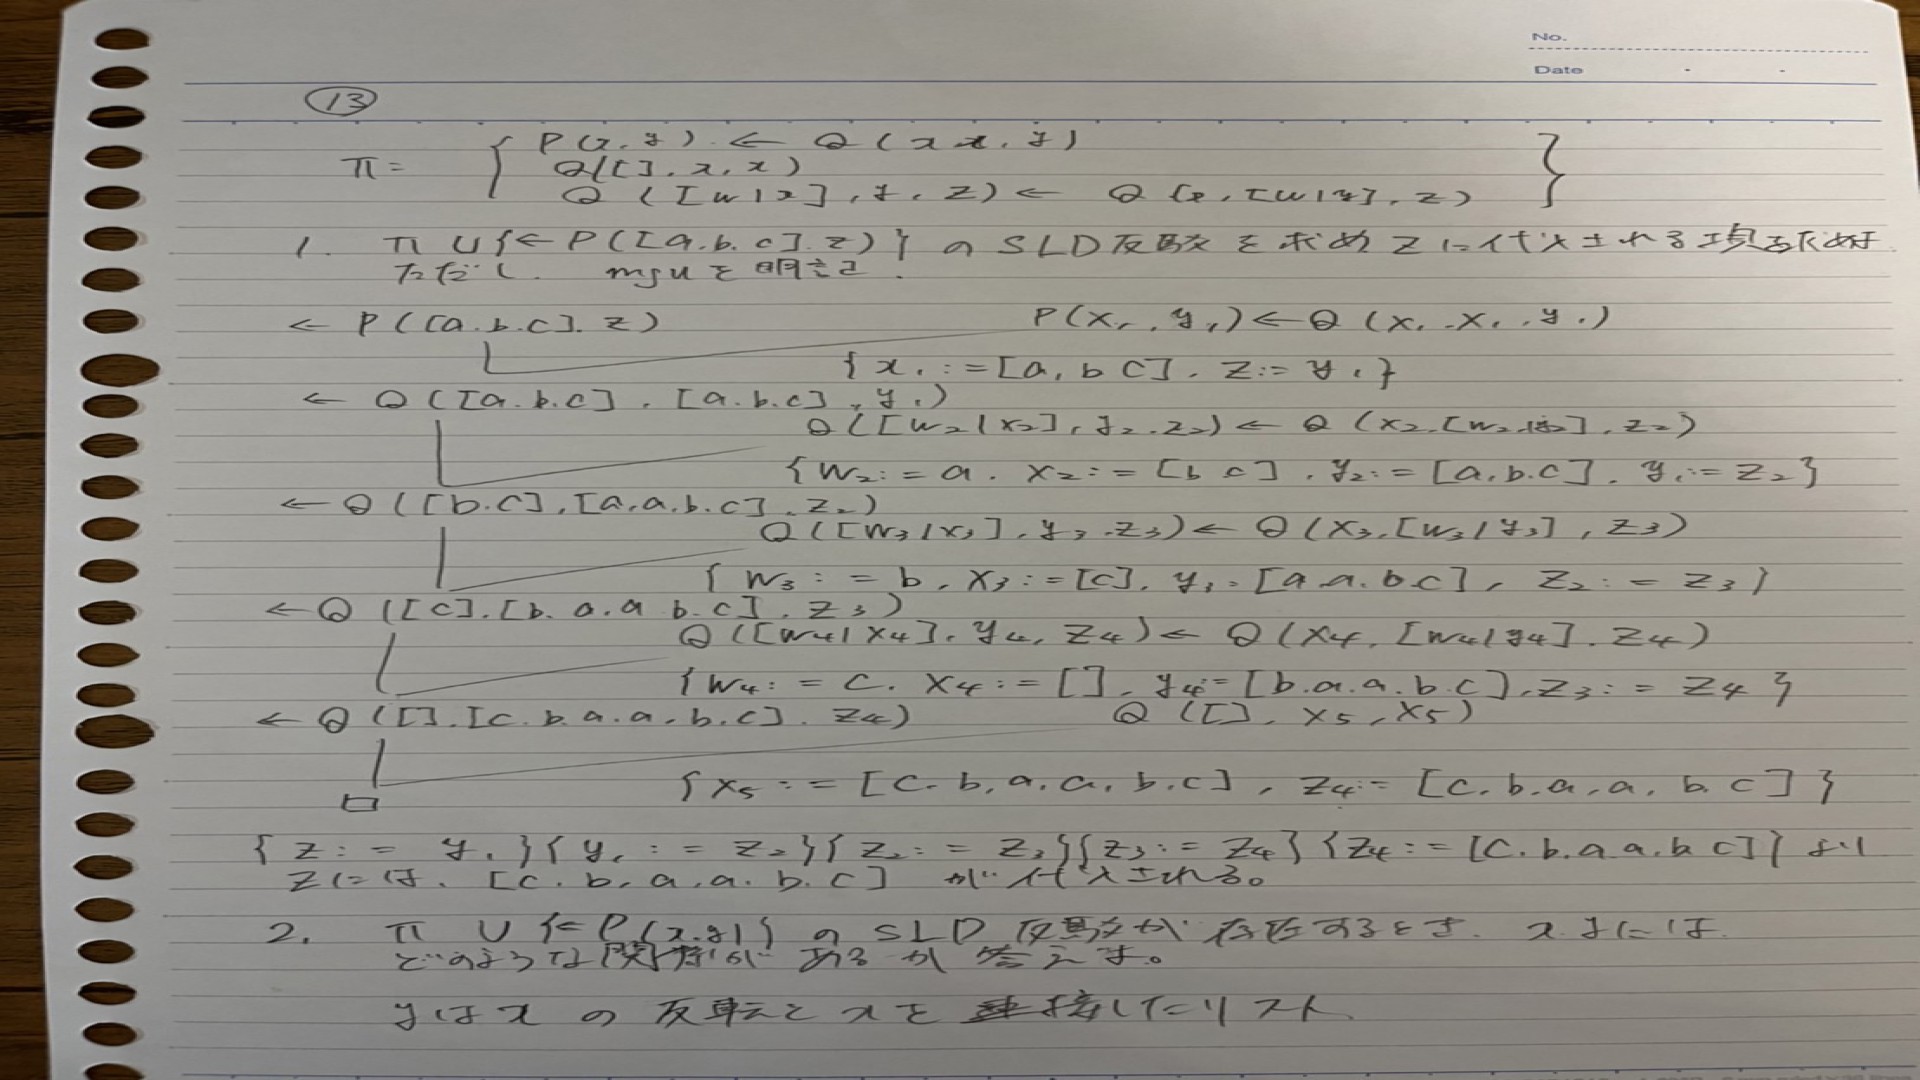 No.
Date
⑬
π = { P(x, y) ← Q(x, x, y)
Q([], x, x)
Q([w|x], y, z) ← Q(x, [w|y], z) }
1. π ∪ {← P([a.b.c].z)} の SLD反駁を求め zに代入される項を求めよ
ただし. mguを明記.
← P([a.b.c].z) P(x₁, y₁) ← Q(x₁.x₁.y₁)
{x₁ := [a, b c]. z := y₁}
← Q([a.b.c], [a.b.c], y₁)
Q([w₂|x₂], y₂.z₂) ← Q(x₂.[w₂|y₂].z₂)
{w₂ := a. x₂ := [b c], y₂ := [a,b.c]. y₁ := z₂}
← Q([b.c], [a,a.b.c].z₂)
Q([w₃|x₃], y₃.z₃) ← Q(x₃,[w₃|y₃], z₃)
{w₃ := b, x₃ := [c], y₃ = [a a.b c], z₂ := z₃}
← Q([c].[b.a.a b.c], z₃)
Q([w₄|x₄], y₄, z₄) ← Q(x₄, [w₄|y₄].z₄)
{w₄ := c. x₄ := [], y₄ = [b.a.a.b.c], z₃ := z₄}
← Q([].[c.b.a.a.b.c].z₄) Q([], x₅, x₅)
{x₅ := [c.b.a.a.b.c], z₄ := [c.b.a.a.b c]}
□
{z := y₁}{y₁ := z₂}{z₂ := z₃}{z₃ := z₄}{z₄ := [c.b.a a.b c]} より
zには、[c.b,a.a.b.c] が代入される。
2. π ∪ {← P(x.y)} の SLD 反駁が存在するとき. x yには
どのような関係があるか答えよ。
yはxの反転とxを連接したリスト